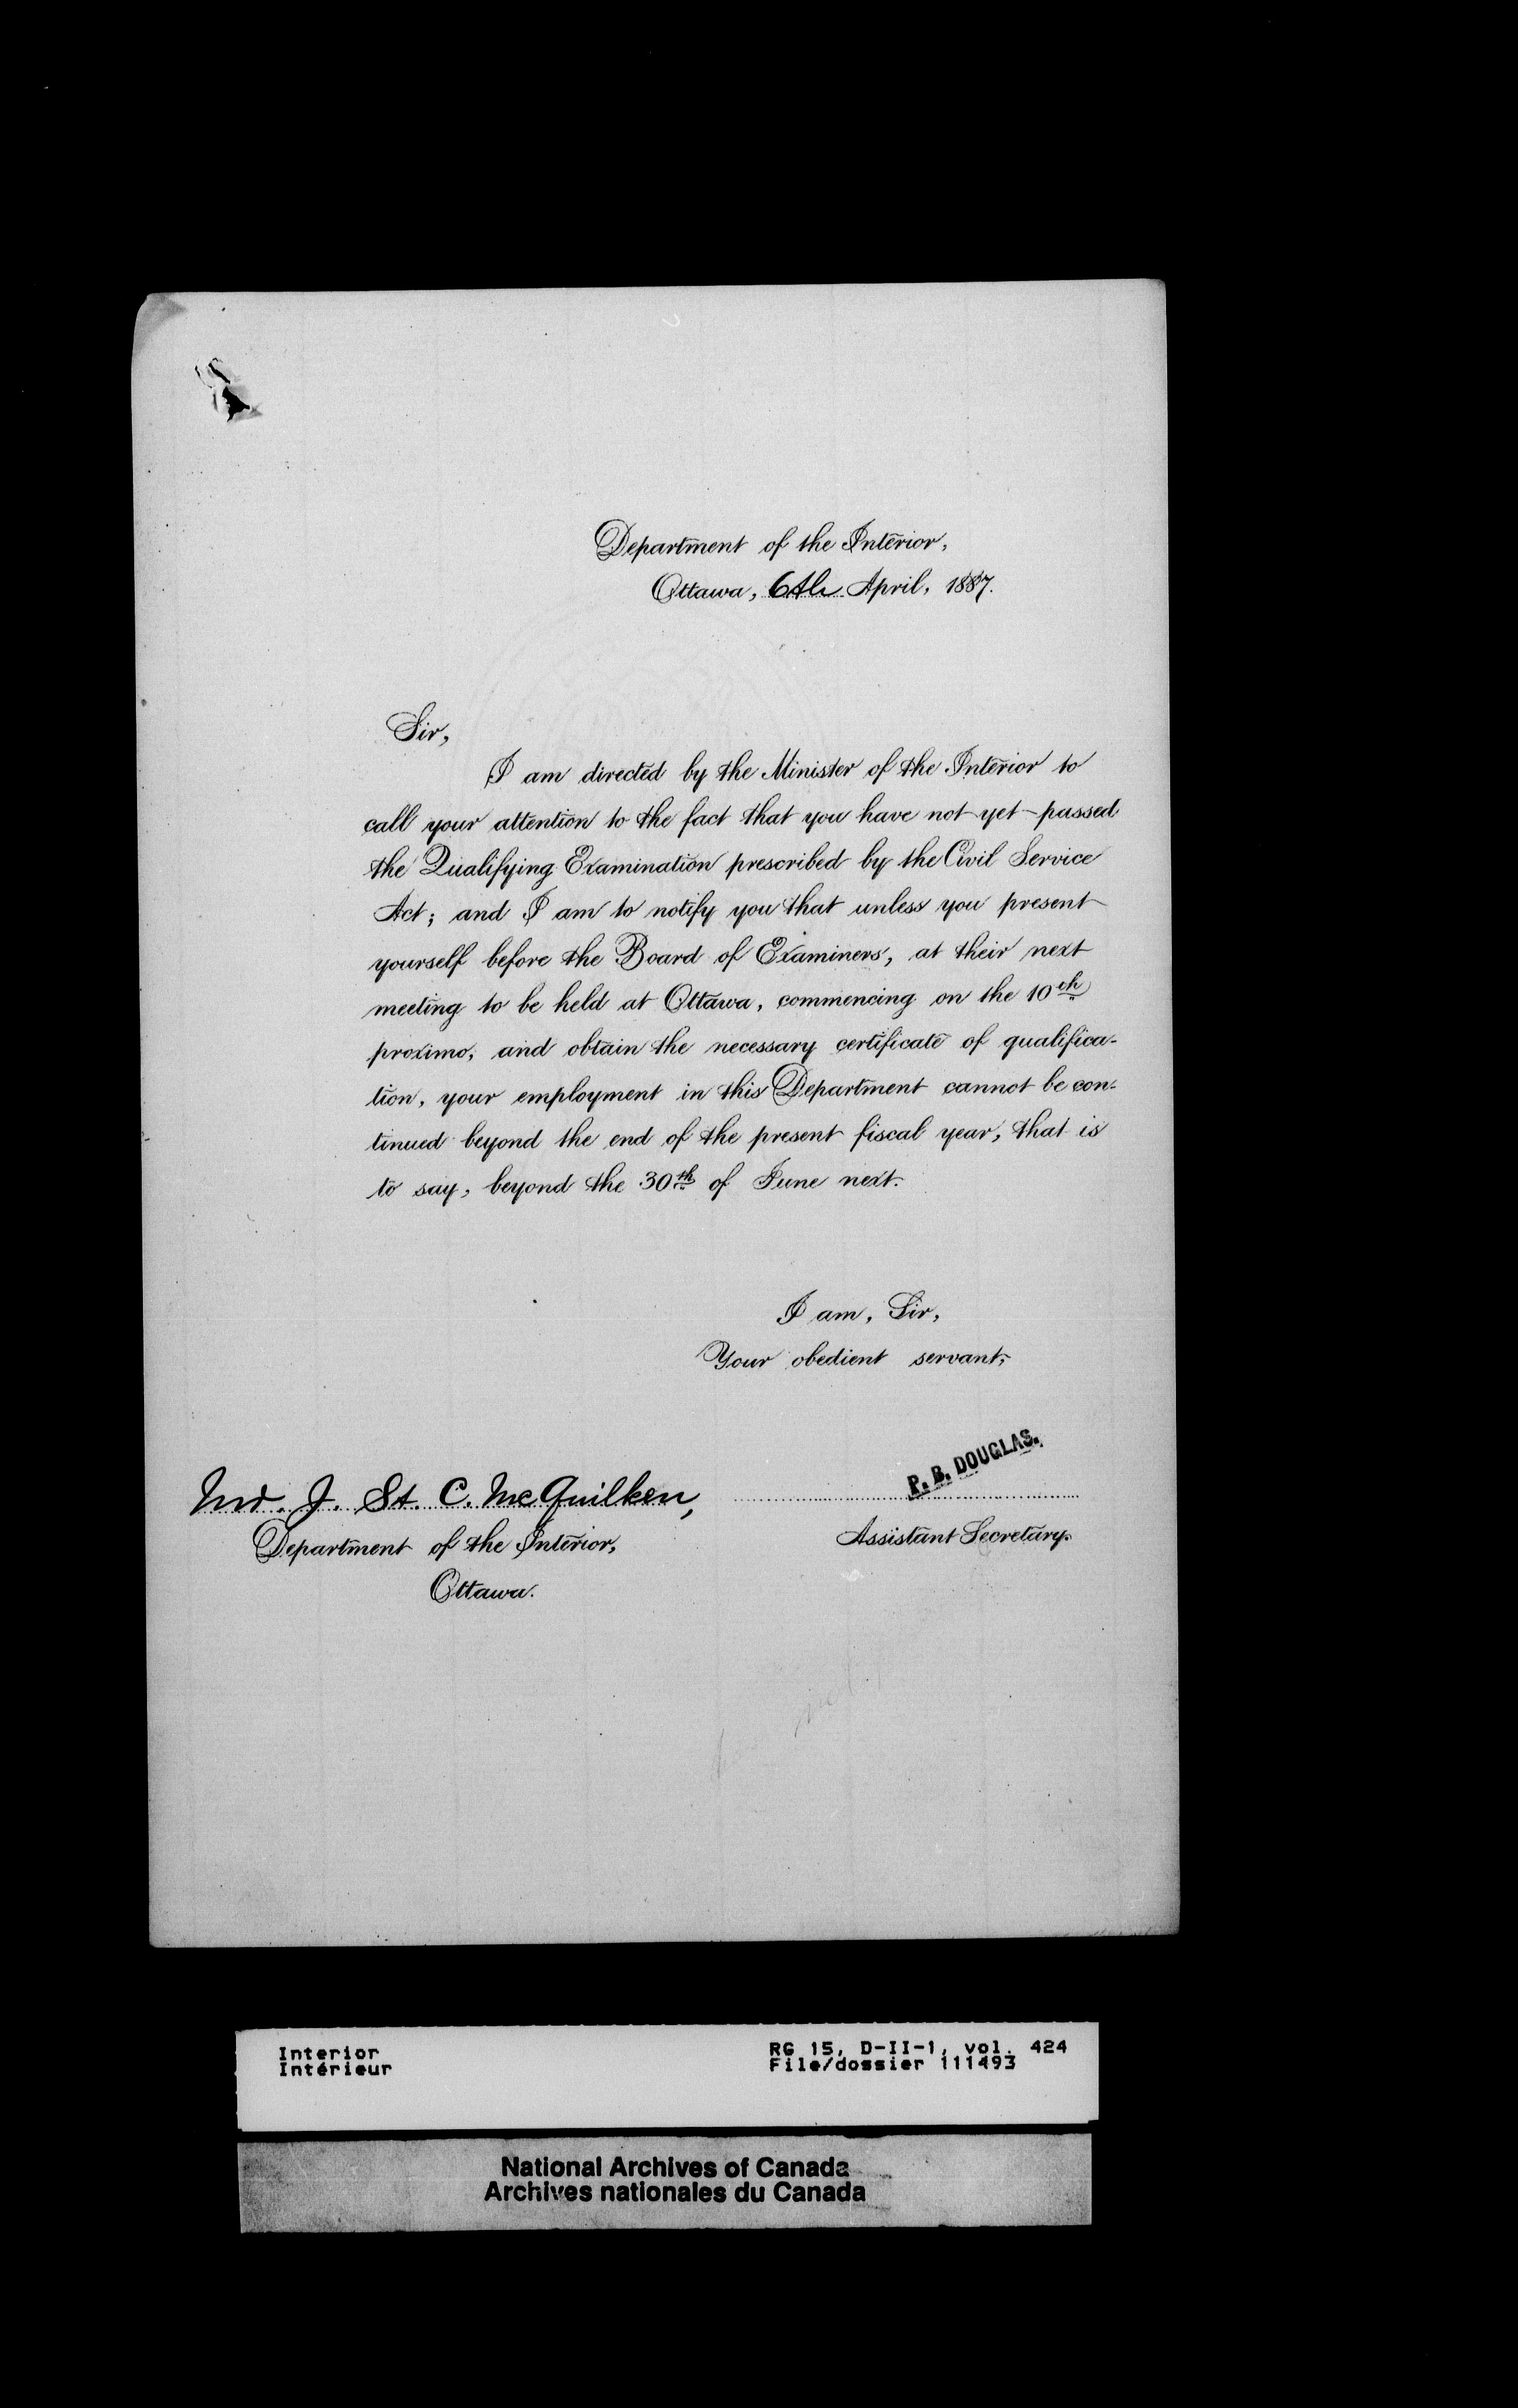 Department of the Interior,
Ottawa, 6th April, 1887.
Sir,
I am directed by the Minister of the Interior to
call your attention to the fact that you have not yet passed
the Qualifying Examination prescribed by the Civil Service
Act; and I am to notify you that unless you present
yourself before the Board of Examiners, at their next
meeting to be held at Ottawa, commencing on the 10th
proximo, and obtain the necessary certificate of qualifica-
tion, your employment in this Department cannot be con-
tinued beyond the end of the present fiscal year, that is
to say, beyond the 30th of June next.
I am, Sir,
Your obedient servant,
P. B. DOUGLAS.
Assistant Secretary.
Mr. J. St. C. McQuilken,
Department of the Interior,
Ottawa.
Interior
Intérieur
RG 15, D-II-1, vol. 424
File/dossier 111493
National Archives of Canada
Archives nationales du Canada